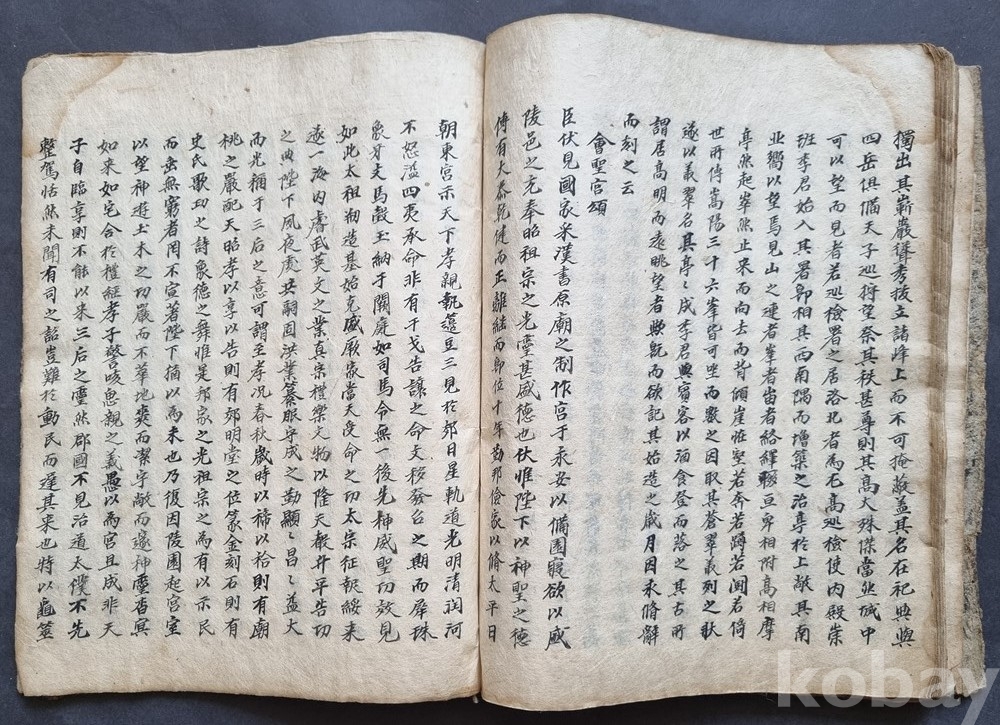 獨出其嶄巖聳秀拔立諸峰上而不可掩蔽盖其名在祀典與
四岳俱俻天子巡狩望祭其秩甚尊則其高大殊傑當並城中
可以望而見者若巡檢署之居洛北者為尤高巡檢使內殿崇
班李君始入其署卽相其西南隅而增築之治亭於上敞其南
北嚮以望焉見山之連者峯者岫者絡繹聯亘卑相附高相摩
亭然起崒然止來而向去而背傾崖怪壑若奔若蹲若鬪若倚
世所傳嵩陽三十六峯皆可坐而數之因取其蒼翠義列之狀
遂以義翠名其亭亭成李君與賓客以酒食登而落之其古所
謂居高明而遠眺望者歟旣而欲記其始造之歲月因求脩辭
而刻之云
會聖宮頌
臣伏見國家采漢書原廟之制作宮于永安以備園寢欲以盛
陵邑之充奉昭祖宗之光靈甚盛德也伏惟陛下以神聖之德
傳有大器乾健而正離継而卽位十年勤邦儉家以脩太平日
朝東宮示天下孝親執籩豆三見於郊日星軌道光明清潤河
不怒溢四夷承命非有干戈告讓之命文移發召之期而犀珠
象牙文馬瑴玉納于闕庭如司馬令無一後先神威聖功效見
如此太祖剏造基始克成厥家當天受命之功太宗征服綏來
遂一海內睿武英文之業真宗禮樂文物以隆天聲升平告功
之典陛下夙夜虔共嗣固洪業纂服守成之勤顯〻昌〻益大
而光稱于三后之意可謂至孝况春秋歲時以禘以祫則有廟
祧之嚴配天昭孝以享以告則有郊明堂之位篆金刻石則有
史氏歌功之詩象德之舞惟是邦家之光祖宗之為有以示民
而岳無窮者罔不宣著陛下猶以為未也乃復因陵園起宮室
以望神遊土木之功嚴而不華地爽而潔宇敞而邃神靈杳冥
如来如宅合於禮經孝子謦咳思親之義愚以為宮且成非天
子自臨享則不能以来三后之靈然郡國不見治道太僕不先
整駕恬然未聞有司之詔豈難於動民而遲其来也特以龜筮